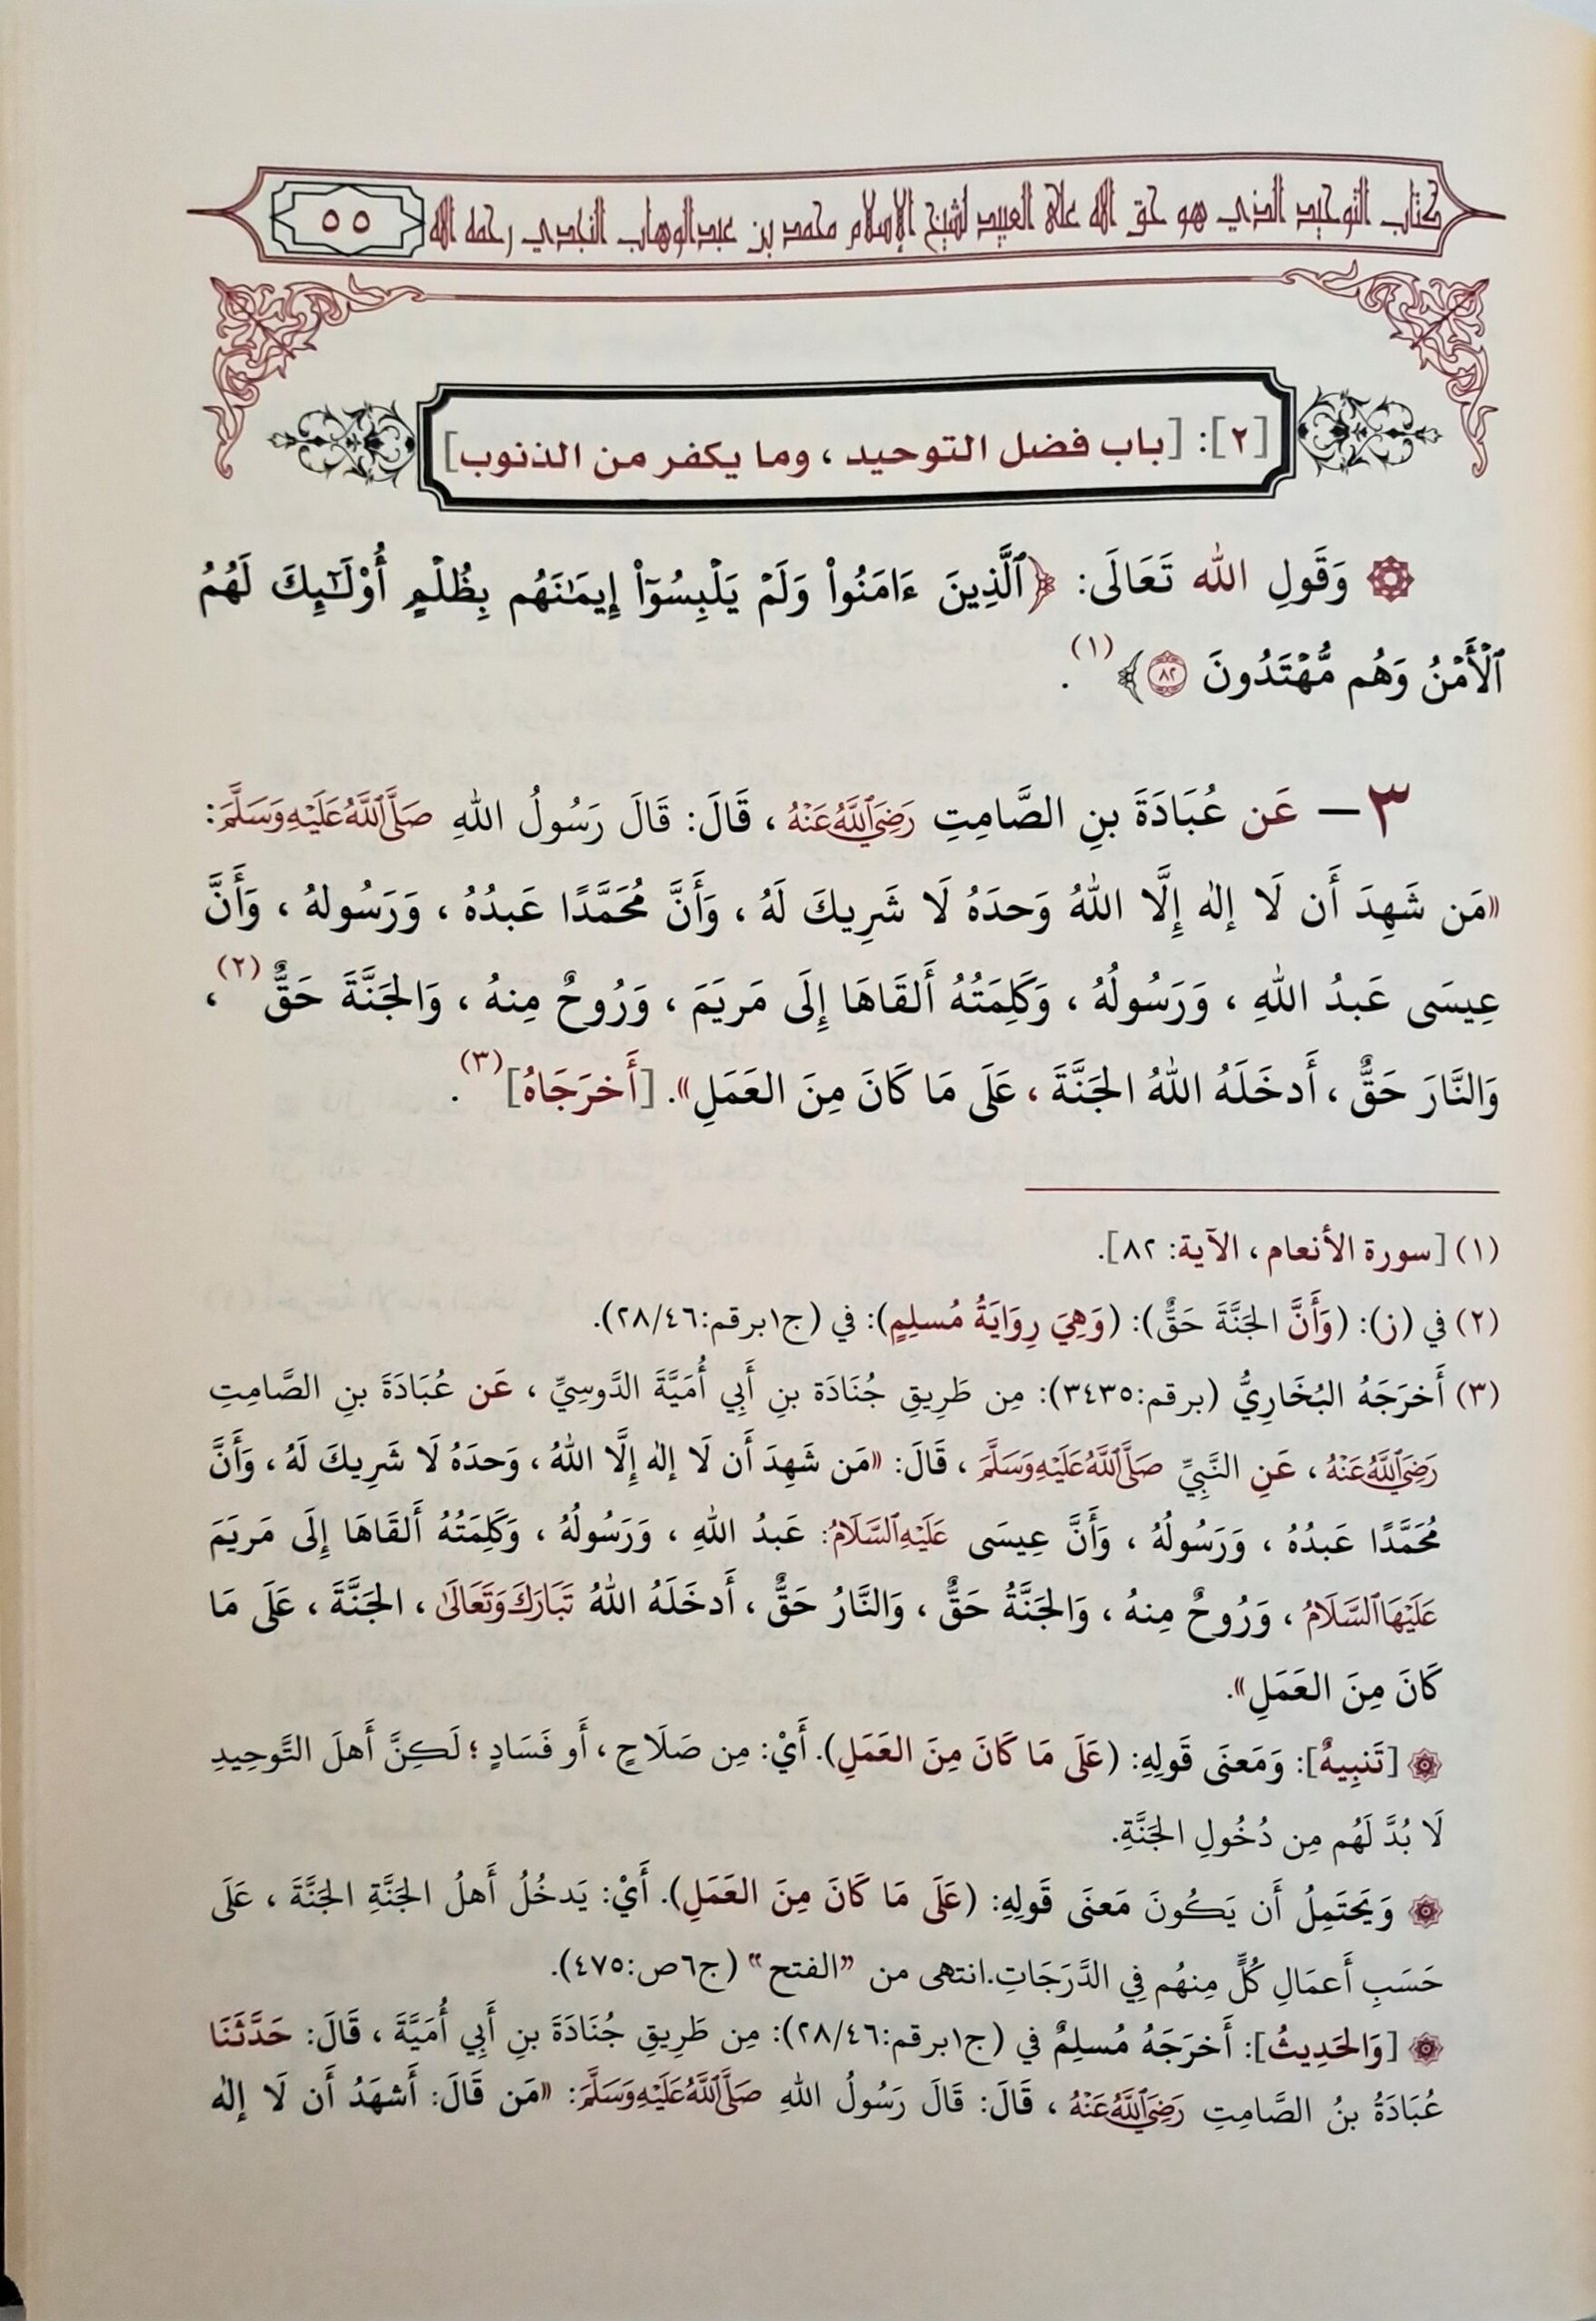 كتاب التوحيد الذي هو حق الله على العبيد لشيخ الإسلام محمد بن عبدالوهاب النجدي رحمه الله ٥٥
[٢]: [باب فضل التوحيد، وما يكفر من الذنوب]
وَقَولِ الله تَعَالَى: ﴿ٱلَّذِينَ ءَامَنُواْ وَلَمۡ يَلۡبِسُوٓاْ إِيمَٰنَهُم بِظُلۡمٍ أُوْلَٰٓئِكَ لَهُمُ
ٱلۡأَمۡنُ وَهُم مُّهۡتَدُونَ ٨٢﴾(١).
٣- عَن عُبَادَةَ بنِ الصَّامِتِ رَضِيَ ٱللَّهُ عَنْهُ، قَالَ: قَالَ رَسُولُ اللهِ صَلَّى ٱللَّهُ عَلَيْهِ وَسَلَّمَ:
«مَن شَهِدَ أَن لَا إلٰه إِلَّا اللهُ وَحدَهُ لَا شَرِيكَ لَهُ، وَأَنَّ مُحَمَّدًا عَبدُهُ، وَرَسُولهُ، وَأَنَّ
عِيسَى عَبدُ اللهِ، وَرَسُولُهُ، وَكَلِمَتُهُ أَلقَاهَا إِلَى مَريَمَ، وَرُوحٌ مِنهُ، وَالجَنَّةَ حَقٌّ(٢)،
وَالنَّارَ حَقٌّ، أَدخَلَهُ اللهُ الجَنَّةَ، عَلَى مَا كَانَ مِنَ العَمَلِ». [أَخرَجَاهُ](٣).
(١) [سورة الأنعام، الآية: ٨٢].
(٢) في (ز): (وَأَنَّ الجَنَّةَ حَقٌّ): (وَهِيَ رِوَايَةُ مُسلِمٍ): في (ج١برقم:٢٨/٤٦).
(٣) أَخرَجَهُ البُخَارِيُّ (برقم:٣٤٣٥): مِن طَرِيقِ جُنَادَة بنِ أَبِي أُمَيَّةَ الدَّوسِيِّ، عَن عُبَادَةَ بنِ الصَّامِتِ
رَضِيَ ٱللَّهُ عَنْهُ، عَنِ النَّبِيِّ صَلَّى ٱللَّهُ عَلَيْهِ وَسَلَّمَ، قَالَ: «مَن شَهِدَ أَن لَا إلٰه إِلَّا اللهُ، وَحدَهُ لَا شَرِيكَ لَهُ، وَأَنَّ
مُحَمَّدًا عَبدُهُ، وَرَسُولُهُ، وَأَنَّ عِيسَى عَلَيْهِ ٱلسَّلَامُ: عَبدُ اللهِ، وَرَسُولُهُ، وَكَلِمَتُهُ أَلقَاهَا إِلَى مَريَمَ
عَلَيْهَا ٱلسَّلَامُ، وَرُوحٌ مِنهُ، وَالجَنَّةُ حَقٌّ، وَالنَّارُ حَقٌّ، أَدخَلَهُ اللهُ تَبَارَكَ وَتَعَالَىٰ، الجَنَّةَ، عَلَى مَا
كَانَ مِنَ العَمَلِ».
[تَنبِيهٌ]: وَمَعنَى قَولِهِ: (عَلَى مَا كَانَ مِنَ العَمَلِ). أَيْ: مِن صَلَاحٍ، أَو فَسَادٍ؛ لَكِنَّ أَهلَ التَّوحِيدِ
لَا بُدَّ لَهُم مِن دُخُولِ الجَنَّةِ.
وَيَحتَمِلُ أَن يَكُونَ مَعنَى قَولِهِ: (عَلَى مَا كَانَ مِنَ العَمَلِ). أَيْ: يَدخُلُ أَهلُ الجَنَّةِ الجَنَّةَ، عَلَى
حَسَبِ أَعمَالِ كُلٍّ مِنهُم فِي الدَّرَجَاتِ.انتهى من "الفتح" (ج٦ص:٤٧٥).
[وَالحَدِيثُ]: أَخرَجَهُ مُسلِمٌ في (ج١برقم:٢٨/٤٦): مِن طَرِيقِ جُنَادَةَ بنِ أَبِي أُمَيَّةَ، قَالَ: حَدَّثَنَا
عُبَادَةُ بنُ الصَّامِتِ رَضِيَ ٱللَّهُ عَنْهُ، قَالَ: قَالَ رَسُولُ اللهِ صَلَّى ٱللَّهُ عَلَيْهِ وَسَلَّمَ: «مَن قَالَ: أَشهَدُ أَن لَا إلٰه